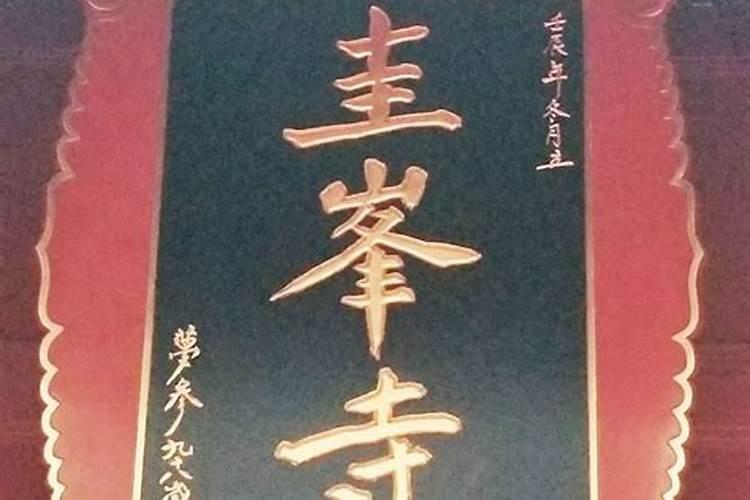 壬辰年冬月立
圭峯寺
夢參九十八歲